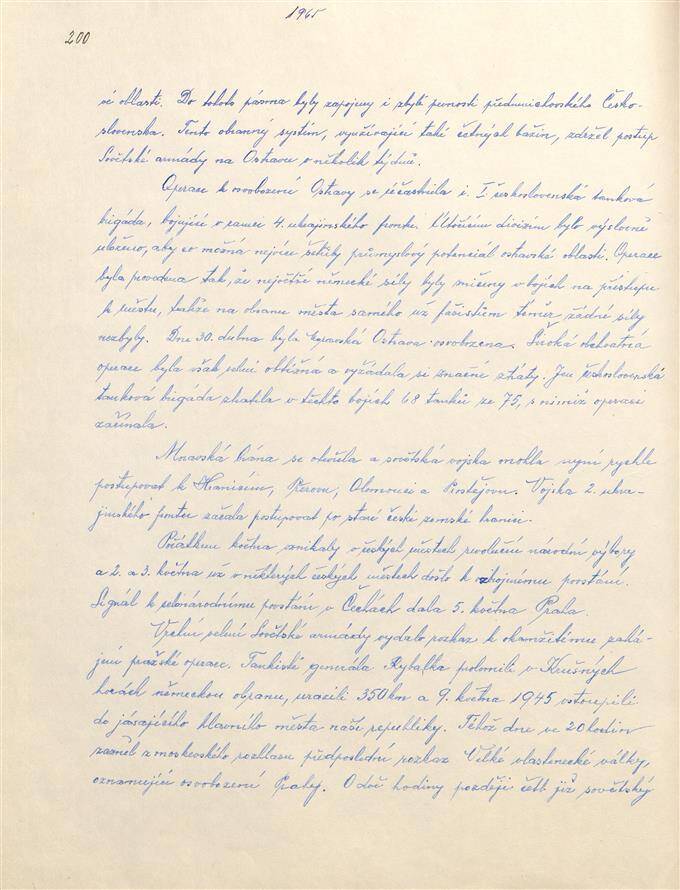 1965
200
vé oblasti. Do tohoto pásma byly zapojeny i zbylé pevnosti předmnichovského Česko-
slovenska. Tento obranný systém, využívající také četných bažin, zdržel postup
Sovětské armády na Ostravu o několik týdnů.
Operace k osvobození Ostravy se účastnila i. I. československá tanková
brigáda, bojující v rámci 4. ukrajinského frontu. Útočícím divizím bylo výslovně
uloženo, aby co možná nejvíce šetřily průmyslový potenciál ostravské oblasti. Operace
byla provedena tak, že největší německé síly byly zničeny v bojích na přístupu
k městu, takže na obranu města samého už fašistům téměř žádné síly
nezbyly. Dne 30. dubna byla Moravská Ostrava osvobozena. Široká obchvatná
operace byla však velmi obtížná a vyžádala si značné ztráty. Jen československá
tanková brigáda ztratila v těchto bojích 68 tanků ze 75, s nimiž operaci
začínala.
Moravská brána se otevřela a sovětská vojska mohla nyní rychle
postupovat k Hranicím, Přerovu, Olomouci a Prostějovu. Vojska 2. ukra-
jinského frontu začala postupovat po staré české zemské hranici.
Počátkem května vznikaly v českých městech revoluční národní výbory
a 2. a 3. května už v některých českých městech došlo k ozbrojenému povstání.
Signál k celonárodnímu povstání v Čechách dala 5. května Praha.
Vrchní velení Sovětské armády vydalo rozkaz k okamžitému zahá-
jení pražské operace. Tankisté generála Rybalka prolomili v Krušných
horách německou obranu, urazili 350 km a 9. května 1945 vstoupili
do jásajícího hlavního města naší republiky. Téhož dne ve 20 hodin
zazněl z moskevského rozhlasu předposlední rozkaz Velké vlastenecké války,
oznamující osvobození Prahy. O dvě hodiny později četl již sovětský